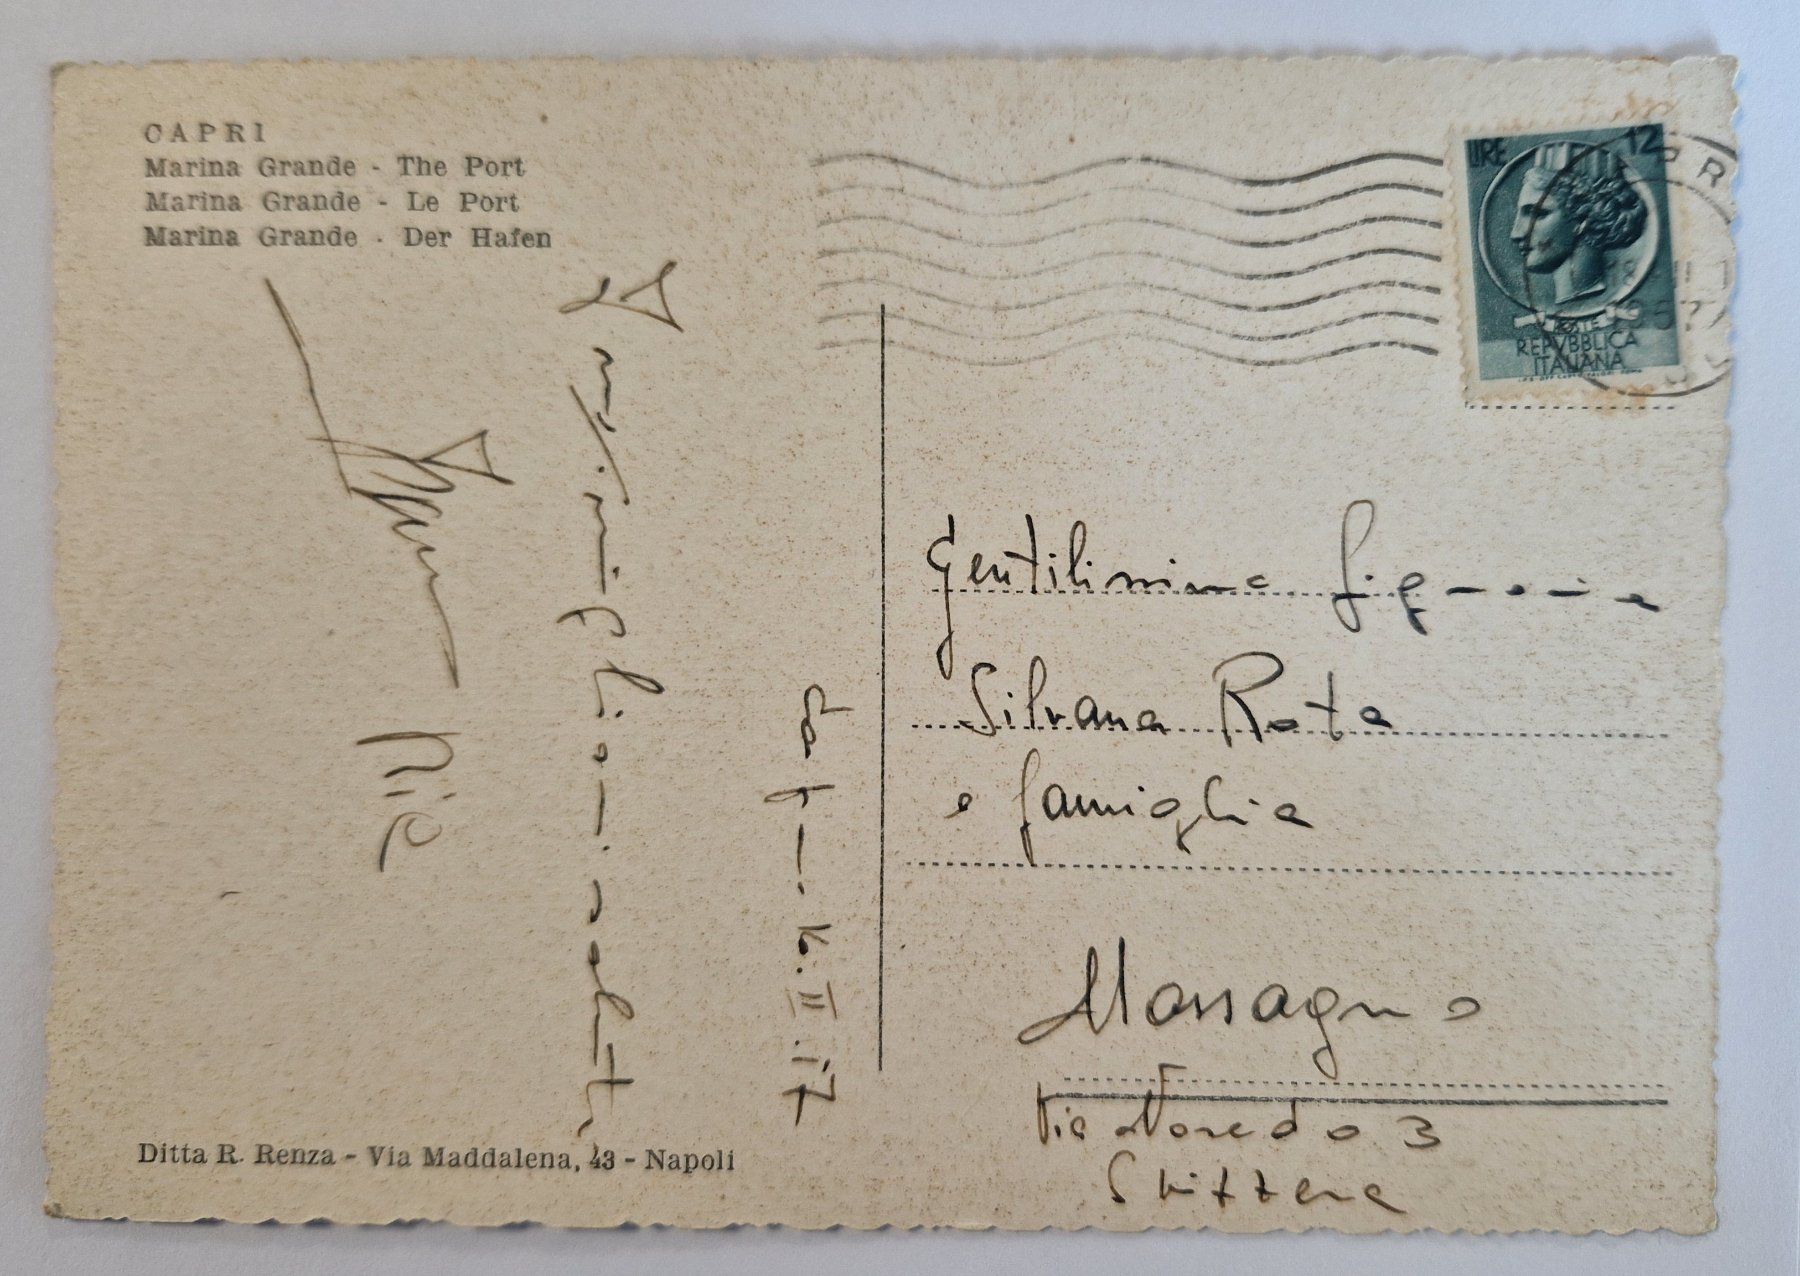 CAPRI
Marina Grande - The Port
Marina Grande - Le Port
Marina Grande - Der Hafen
I migliori saluti
Nic
LIRE 12
POSTE
REPVBBLICA
ITALIANA
Gentilissima Signorina
Silvana Rota
e famiglia
Massagno
Via Noredo 3
Svizzera
Ditta R. Renza - Via Maddalena, 43 - Napoli